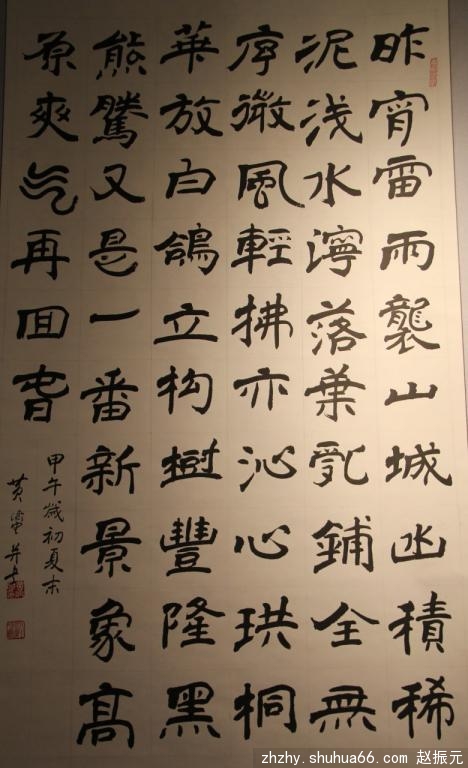 昨宵雷雨襲山城凼積稀
泥浅水濘落葉亂鋪全無
序微風輕拂亦沁心珙桐
華放白鴿立构樹豐隆黑
熊騰又是一番新景象高
原爽气再回旾
甲午歲初夏末
黄
zhzhy.shuhua66.com 赵振元